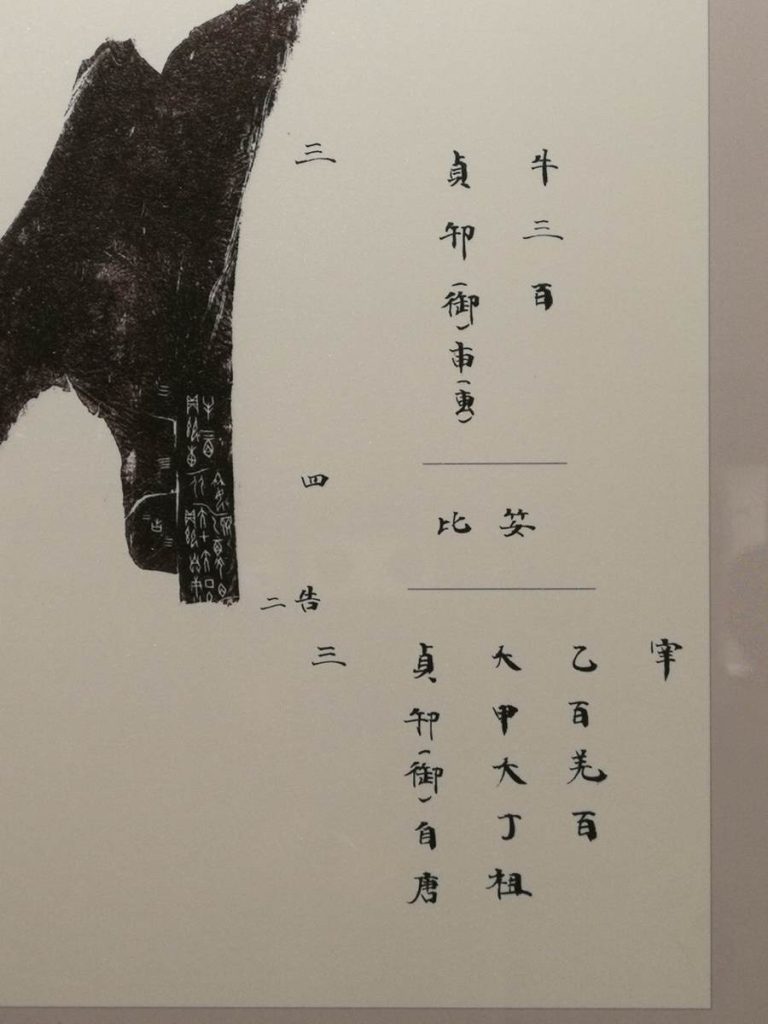 三
貞卸(御)叀(惠)
牛三百
四
比
二告
三
貞卸(御)自唐
大甲大丁祖
乙百羌百